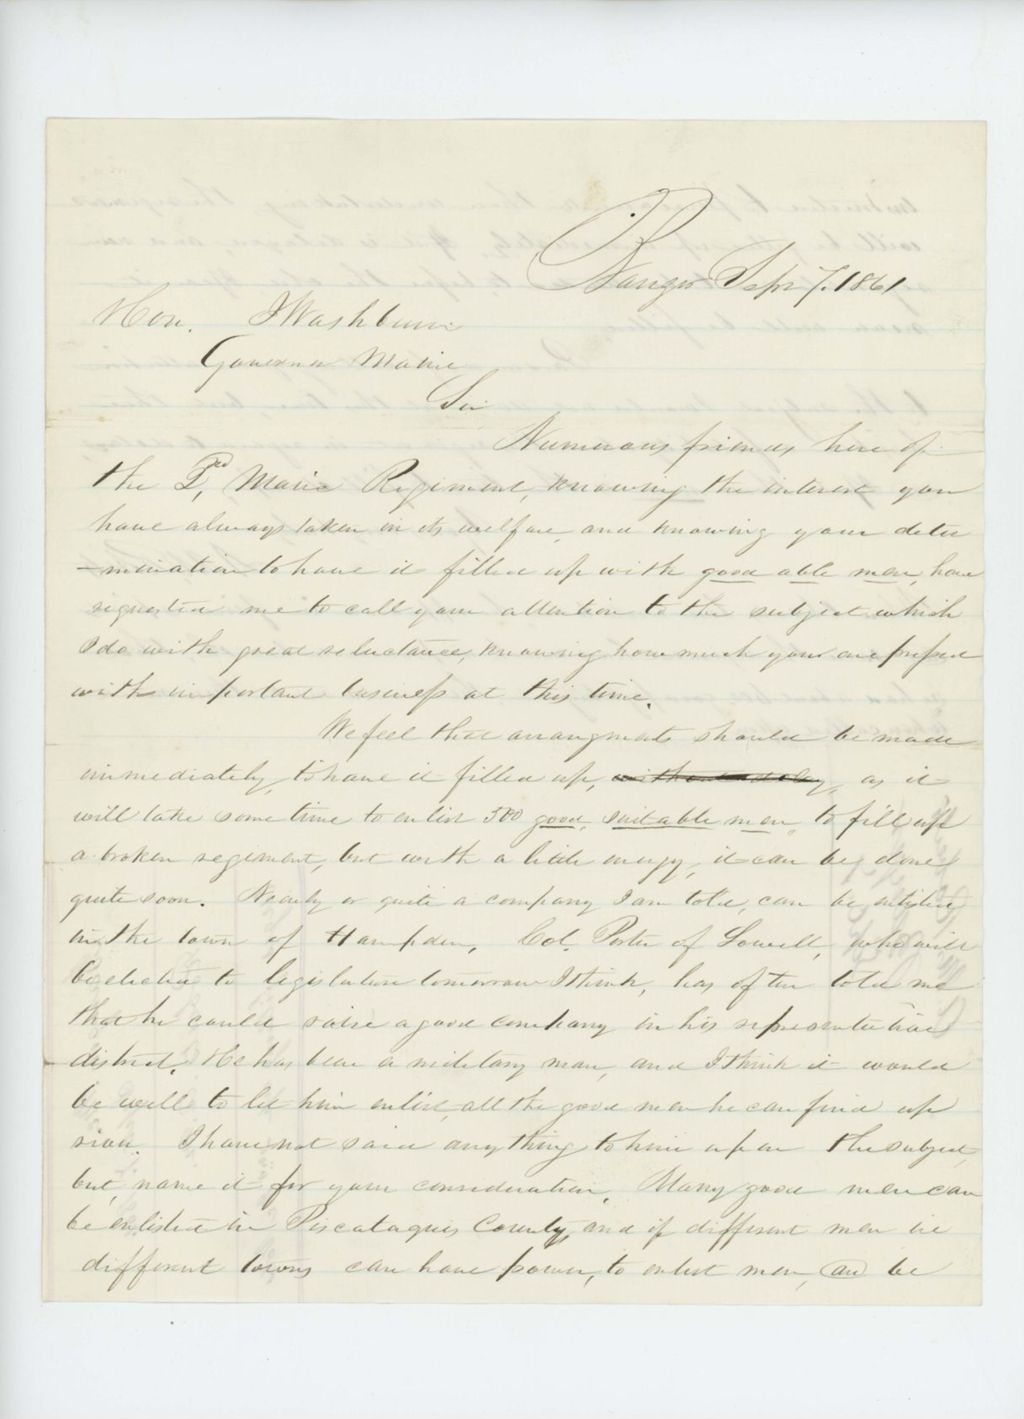 Bangor Sept 7. 1861
Hon. I Washburn
Governor Maine
Sir
Numerous friends here of
the 2nd, Maine Regiment, knowing the interest you
have always taken in its welfare, and knowing your deter
-mination to have it filled up with good able men, have
requested me to call your attention to the subject which
I do with great reluctance, knowing how much your are pressed
with important business at this time.
We feel that arrangments should be made
immediately, to have it filled up, without delay, as it
will take some time to enlist 500 good, suitable men, to fill up
a broken regiment, but with a little energy, it can be done
quite soon. Nearly or quite a company I am told, can be enlisted
in the town of Hampden, Col. Porter of Lowell, who will
be elected to legislature tomorrow I think, has often told me
that he could raise a good company in his representative
district. He has been a military man, and I think it would
be well to let him enlist, all the good men he can find up
river. I have not said any thing to him upon the subject,
but, name it for your consideration. Many good men can
be enlisted in Piscataquis County, and if different men in
different towns can have power, to enlist men, and be